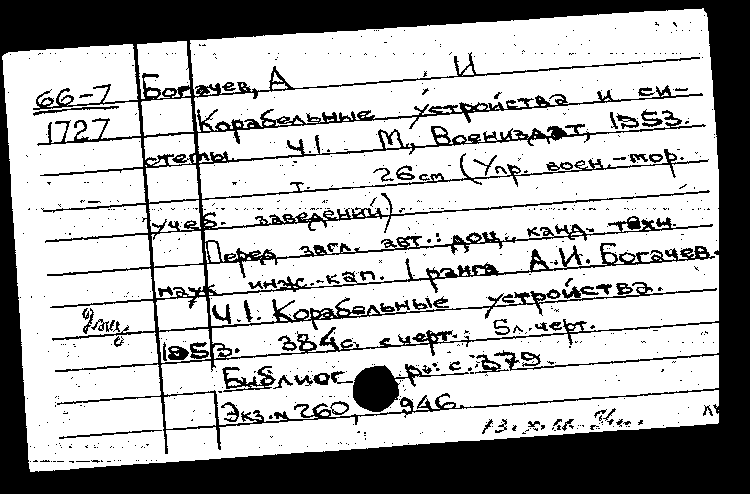 66-7
1727
Богачев, А И
Корабельные устройства и си-
стемы. Ч.1. М., Воениздат, 1953.
т. 26 см (Упр. воен.-мор.
учеб. заведений).
Перед загл. авт.: доц., канд. техн.
наук инж.-кап. 1 ранга А.И. Богачев.
Ч.1. Корабельные устройства.
1953. 384с. с черт.; 5л. черт.
Библиог ры: с. 379.
Экз. № 260, 946.